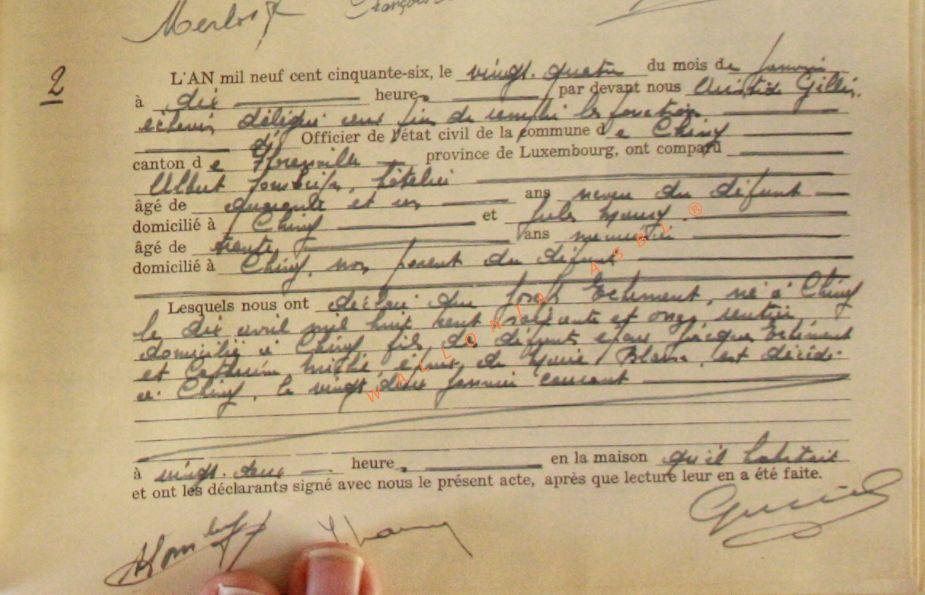 Merlot
François
2
L'AN mil neuf cent cinquante-six, le vingt-quatre du mois de janvier
à dix heures, par devant nous Aristide Gillet,
échevin délégué aux fins de remplir les fonctions
d' Officier de l'état civil de la commune de Chiny
canton de Florenville province de Luxembourg, ont comparu
Albert hôtelier
âgé de quarante et un ans neveu du défunt
domicilié à Chiny et Jules
âgé de trente ans menuisier
domicilié à Chiny, non parent du défunt
Lesquels nous ont déclaré que Joseph Etchement, né à Chiny
le dix avril mil huit cent soixante et onze, rentier
domicilié à Chiny fils des défunts époux Jacques Etchement
et Catherine époux de Marie est décédé
à Chiny, le vingt deux janvier courant
à vingt-deux heures, en la maison qu'il habitait
et ont les déclarants signé avec nous le présent acte, après que lecture leur en a été faite.
WALLONIA ASBL ®